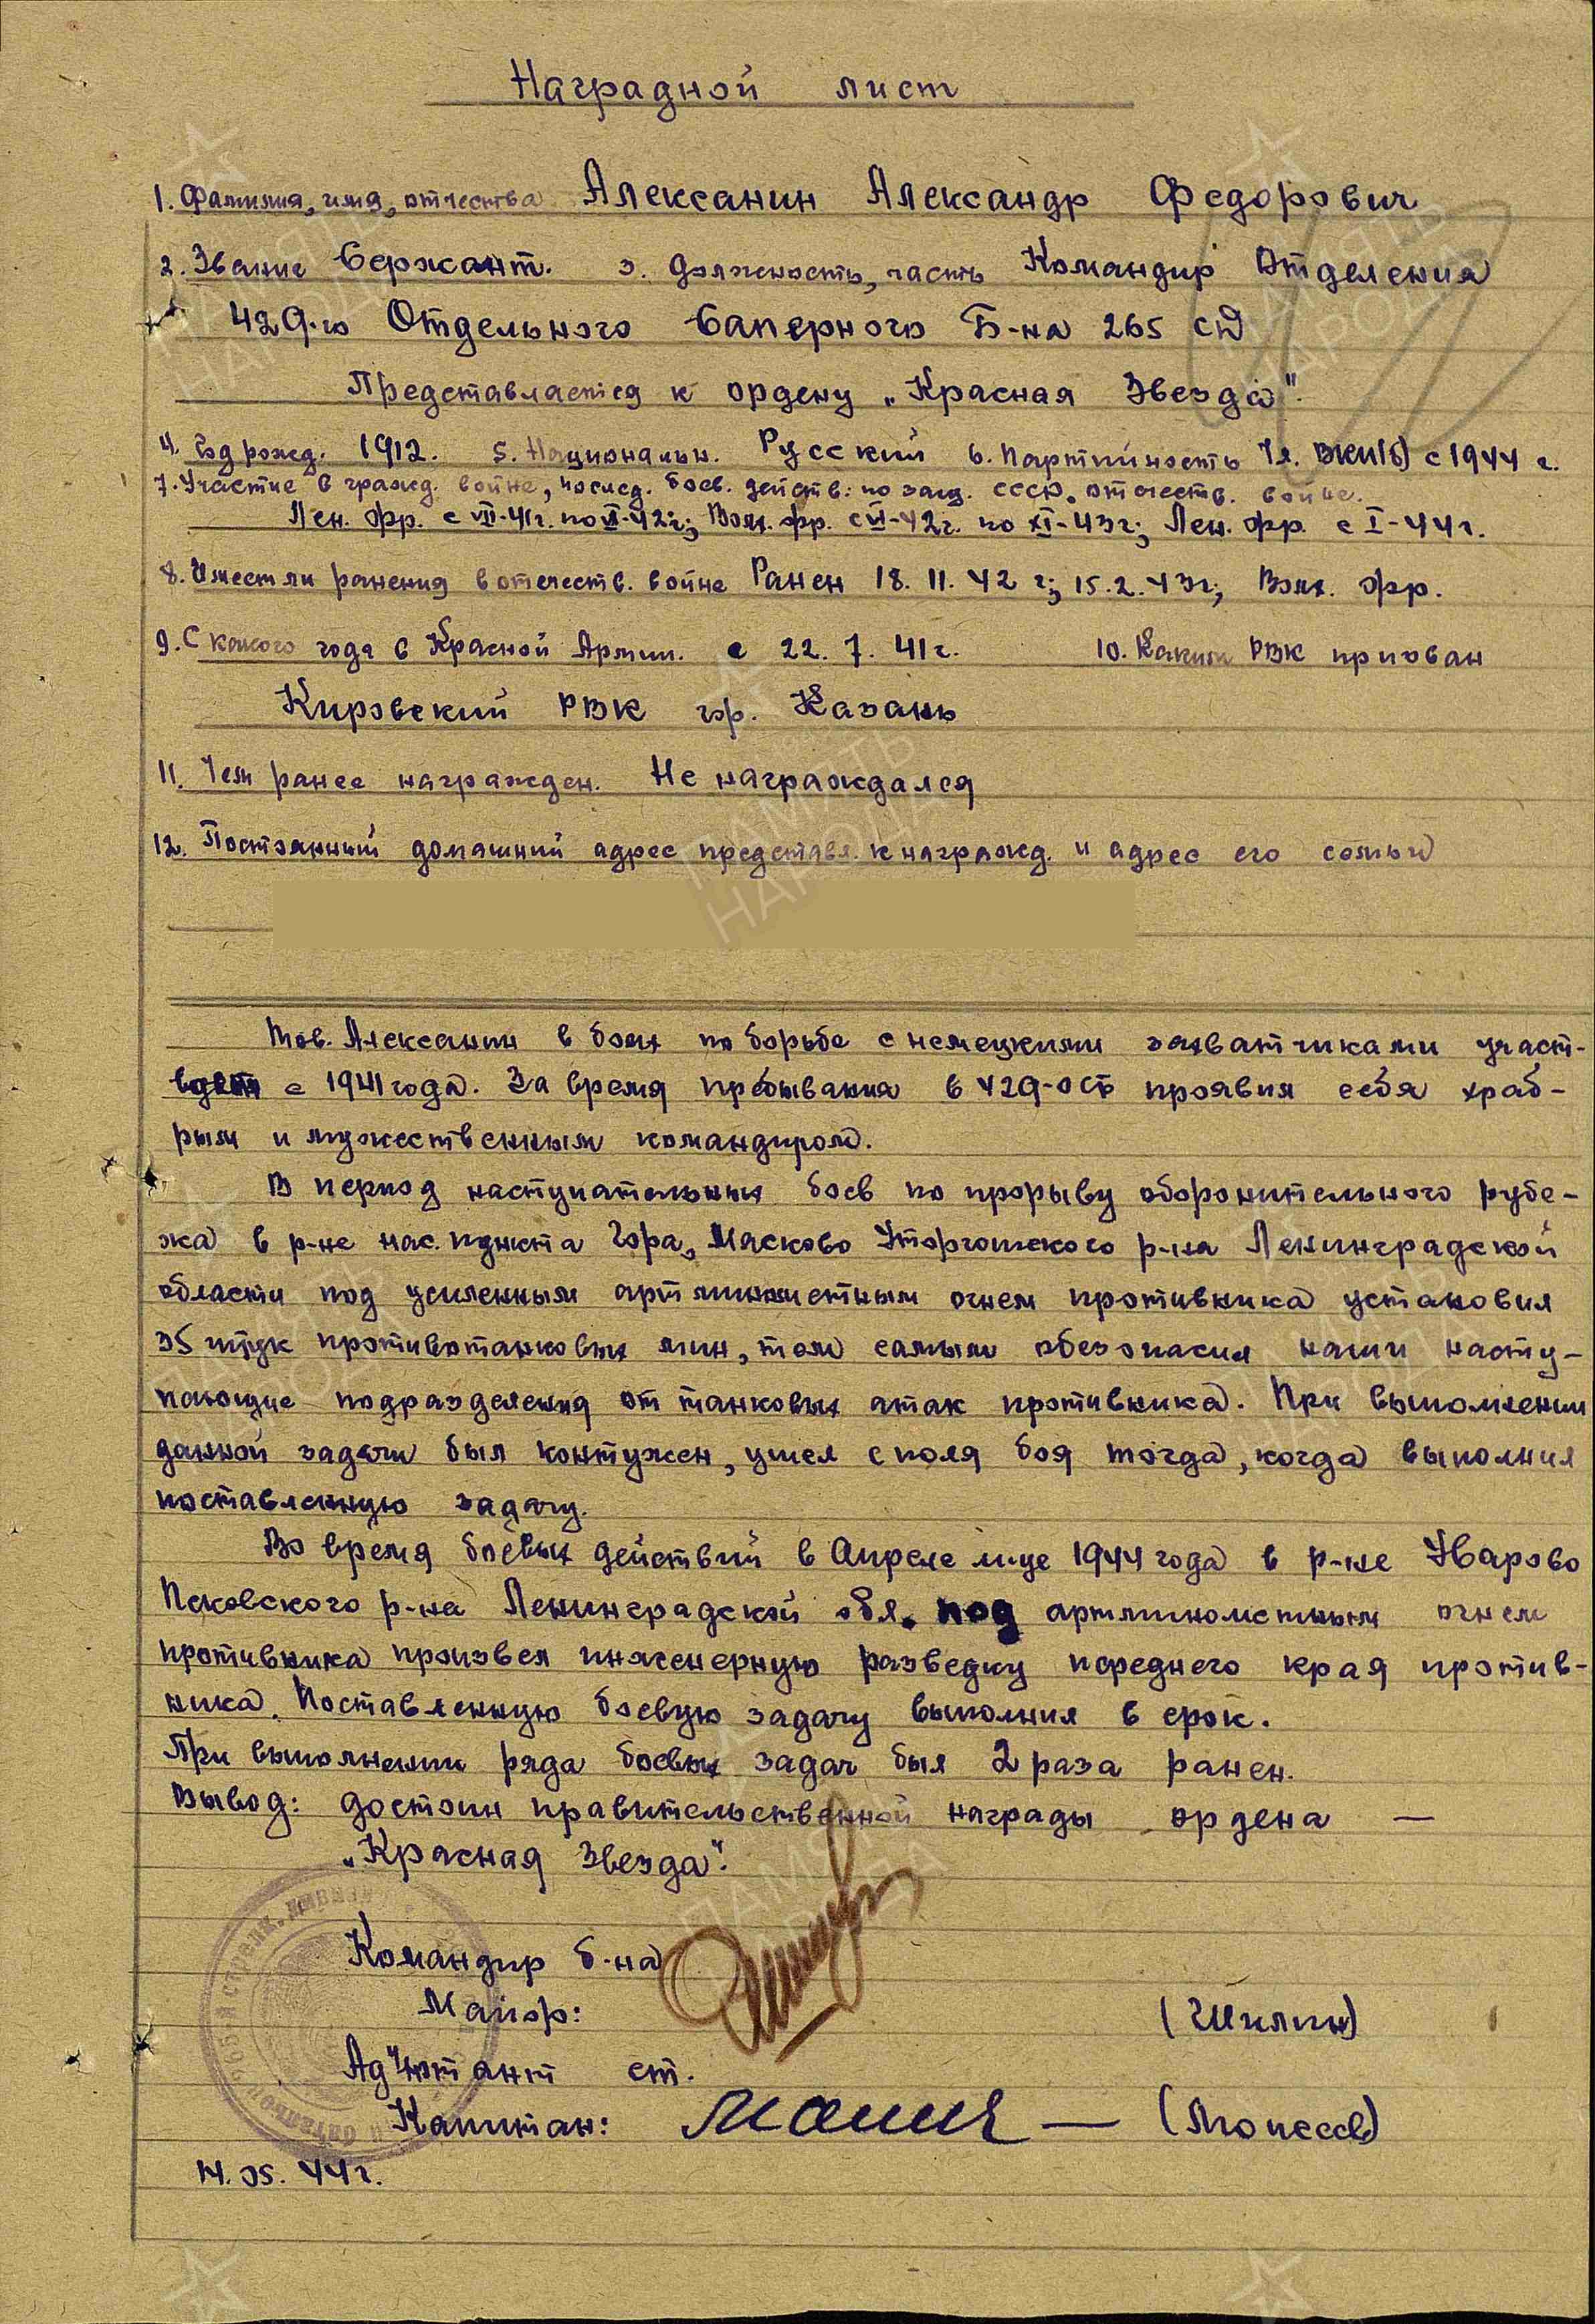 Наградной лист
1. Фамилия, имя, отчества Алексанин Александр Федорович
2. Звание Сержант. 3. Должность, часть Командир Отделения
429-го Отдельного Саперного Б-на 265 сд
Представляется к ордену „Красная Звезда".
4. Год рожд. 1912. 5. Национальн. Русский 6. Партийность Чл. ВКП(б) с 1944 г.
7. Участие в гражд. войне, послед. боев. действ. по защ. СССР, отечеств. войне.
Лен. фр. с VII-41г. по VI-42г.; Волх. фр. с VI-42г. по XI-43г.; Лен. фр. с I-44г.
8. Имеет ли ранения в отечеств. войне Ранен 18. 11. 42 г.; 15. 2. 43г., Волх. фр.
9. С какого года в Красной Армии. с 22. 7. 41г. 10. Каким РВК призван
Кировский РВК гор. Казань
11. Чем ранее награжден. Не награждался
12. Постоянный домашний адрес представл. к награжд. и адрес его семьи
Тов. Алексанин в боях по борьбе с немецкими захватчиками участ-
вует с 1941 года. За время пребывания в 429-ОСБ проявил себя храб-
рым и мужественным командиром.
В период наступательных боев по прорыву оборонительного рубе-
жа в р-не нас. пункта Гора, Масково Уторгошского р-на Ленинградской
области под усиленным артминометным огнем противника установил
35 штук противотанковых мин, тем самым обезопасил наши насту-
пающие подразделения от танковых атак противника. При выполнении
данной задачи был контужен, ушел с поля боя тогда, когда выполнил
поставленную задачу.
Во время боевых действий в Апреле м-це 1944 года в р-не Уварово
Псковского р-на Ленинградской обл. под артминометным огнем
противника произвел инженерную разведку переднего края против-
ника. Поставленную боевую задачу выполнил в срок.
При выполнении ряда боевых задач был 2 раза ранен.
Вывод: достоин правительственной награды ордена —
„Красная Звезда".
Командир б-на
Майор: (Шилин)
Адъютант ст.
Капитан: (Моисеев)
14. 05. 44г.
ПАМЯТЬ НАРОДА